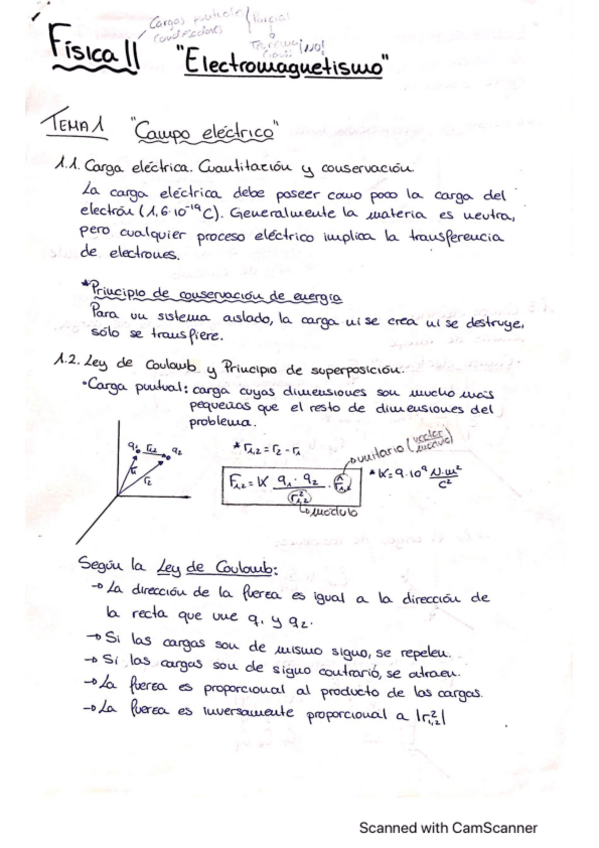 Cargas puntuales
Parcial
Física II
¡NO!
"Electromagnetismo"
TEMA 1 "Campo eléctrico"
1.1. Carga eléctrica. Cuantitación y conservación.
La carga eléctrica debe poseer como poco la carga del
electrón (1,6·10⁻¹⁹C). Generalmente la materia es neutra,
pero cualquier proceso eléctrico implica la transferencia
de electrones.
*Principio de conservación de energía
Para un sistema aislado, la carga ni se crea ni se destruye,
sólo se transfiere.
1.2. Ley de Coulomb y Principio de superposición.
•Carga puntual: carga cuyas dimensiones son mucho más
pequeñas que el resto de dimensiones del
problema.
q₁ r₁,₂ q₂
r₁ r₂
* r₁,₂ = r₂ - r₁
unitario (vector
F₁,₂ = K q₁ · q₂ / r²₁,₂ · r̂₁,₂
módulo
* K = 9·10⁹ N·m²/C²
Según la Ley de Coulomb:
→ La dirección de la fuerza es igual a la dirección de
la recta que une q₁ y q₂.
→ Si las cargas son de mismo signo, se repelen.
→ Si las cargas son de signo contrario, se atraen.
→ La fuerza es proporcional al producto de las cargas.
→ La fuerza es inversamente proporcional a |r²₁,₂|
Scanned with CamScanner